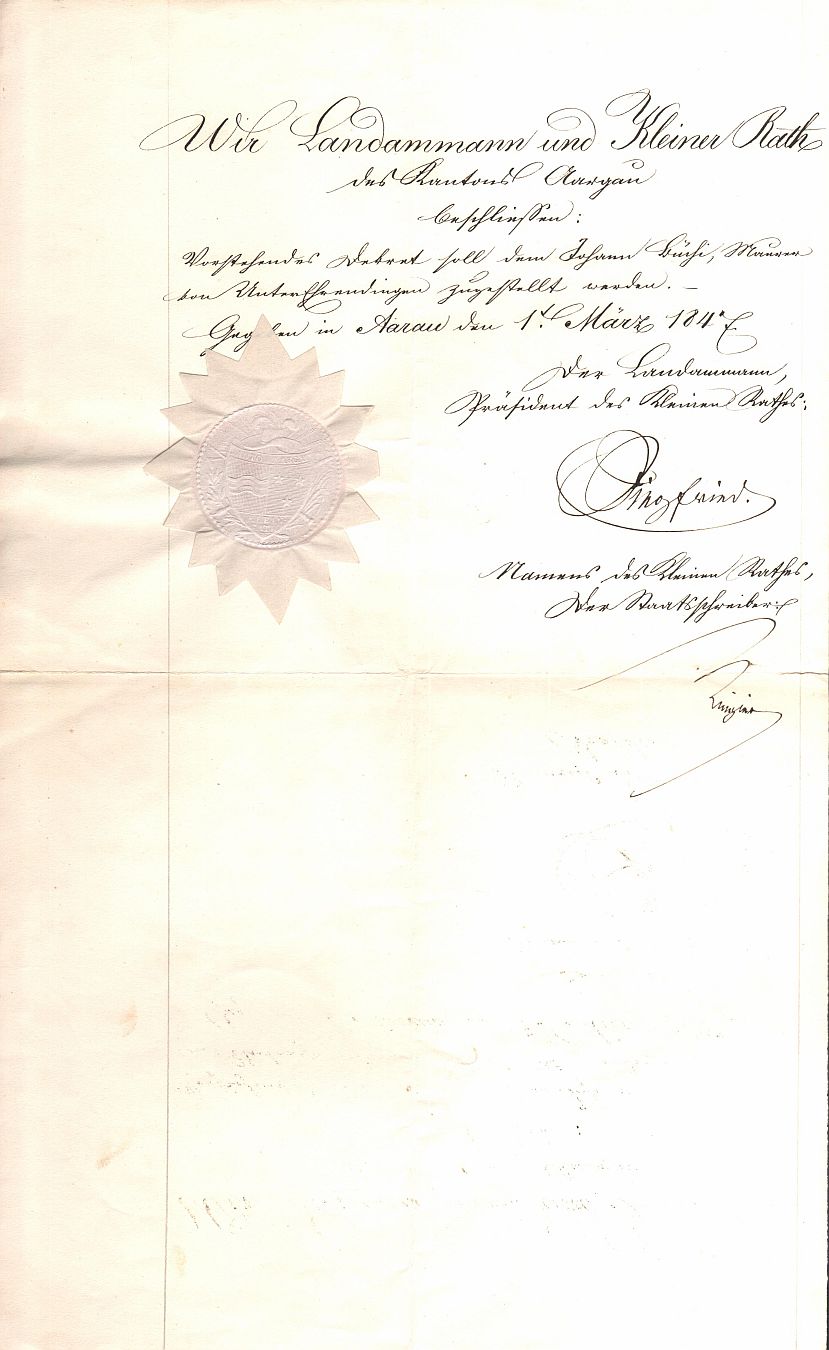 Wir Landammann und Kleiner Rath
des Kantons Aargau
beschliessen:
Vorstehendes Dekret soll dem Johann Büchi, Maurer
von UnterEhrendingen zugestellt werden. –
Gegeben in Aarau den 1t. März 184
Der Landammann,
Präsident des Kleinen Rathes:
Siegfried.
Namens des Kleinen Rathes,
Der Staatsschreiber:
Ringier